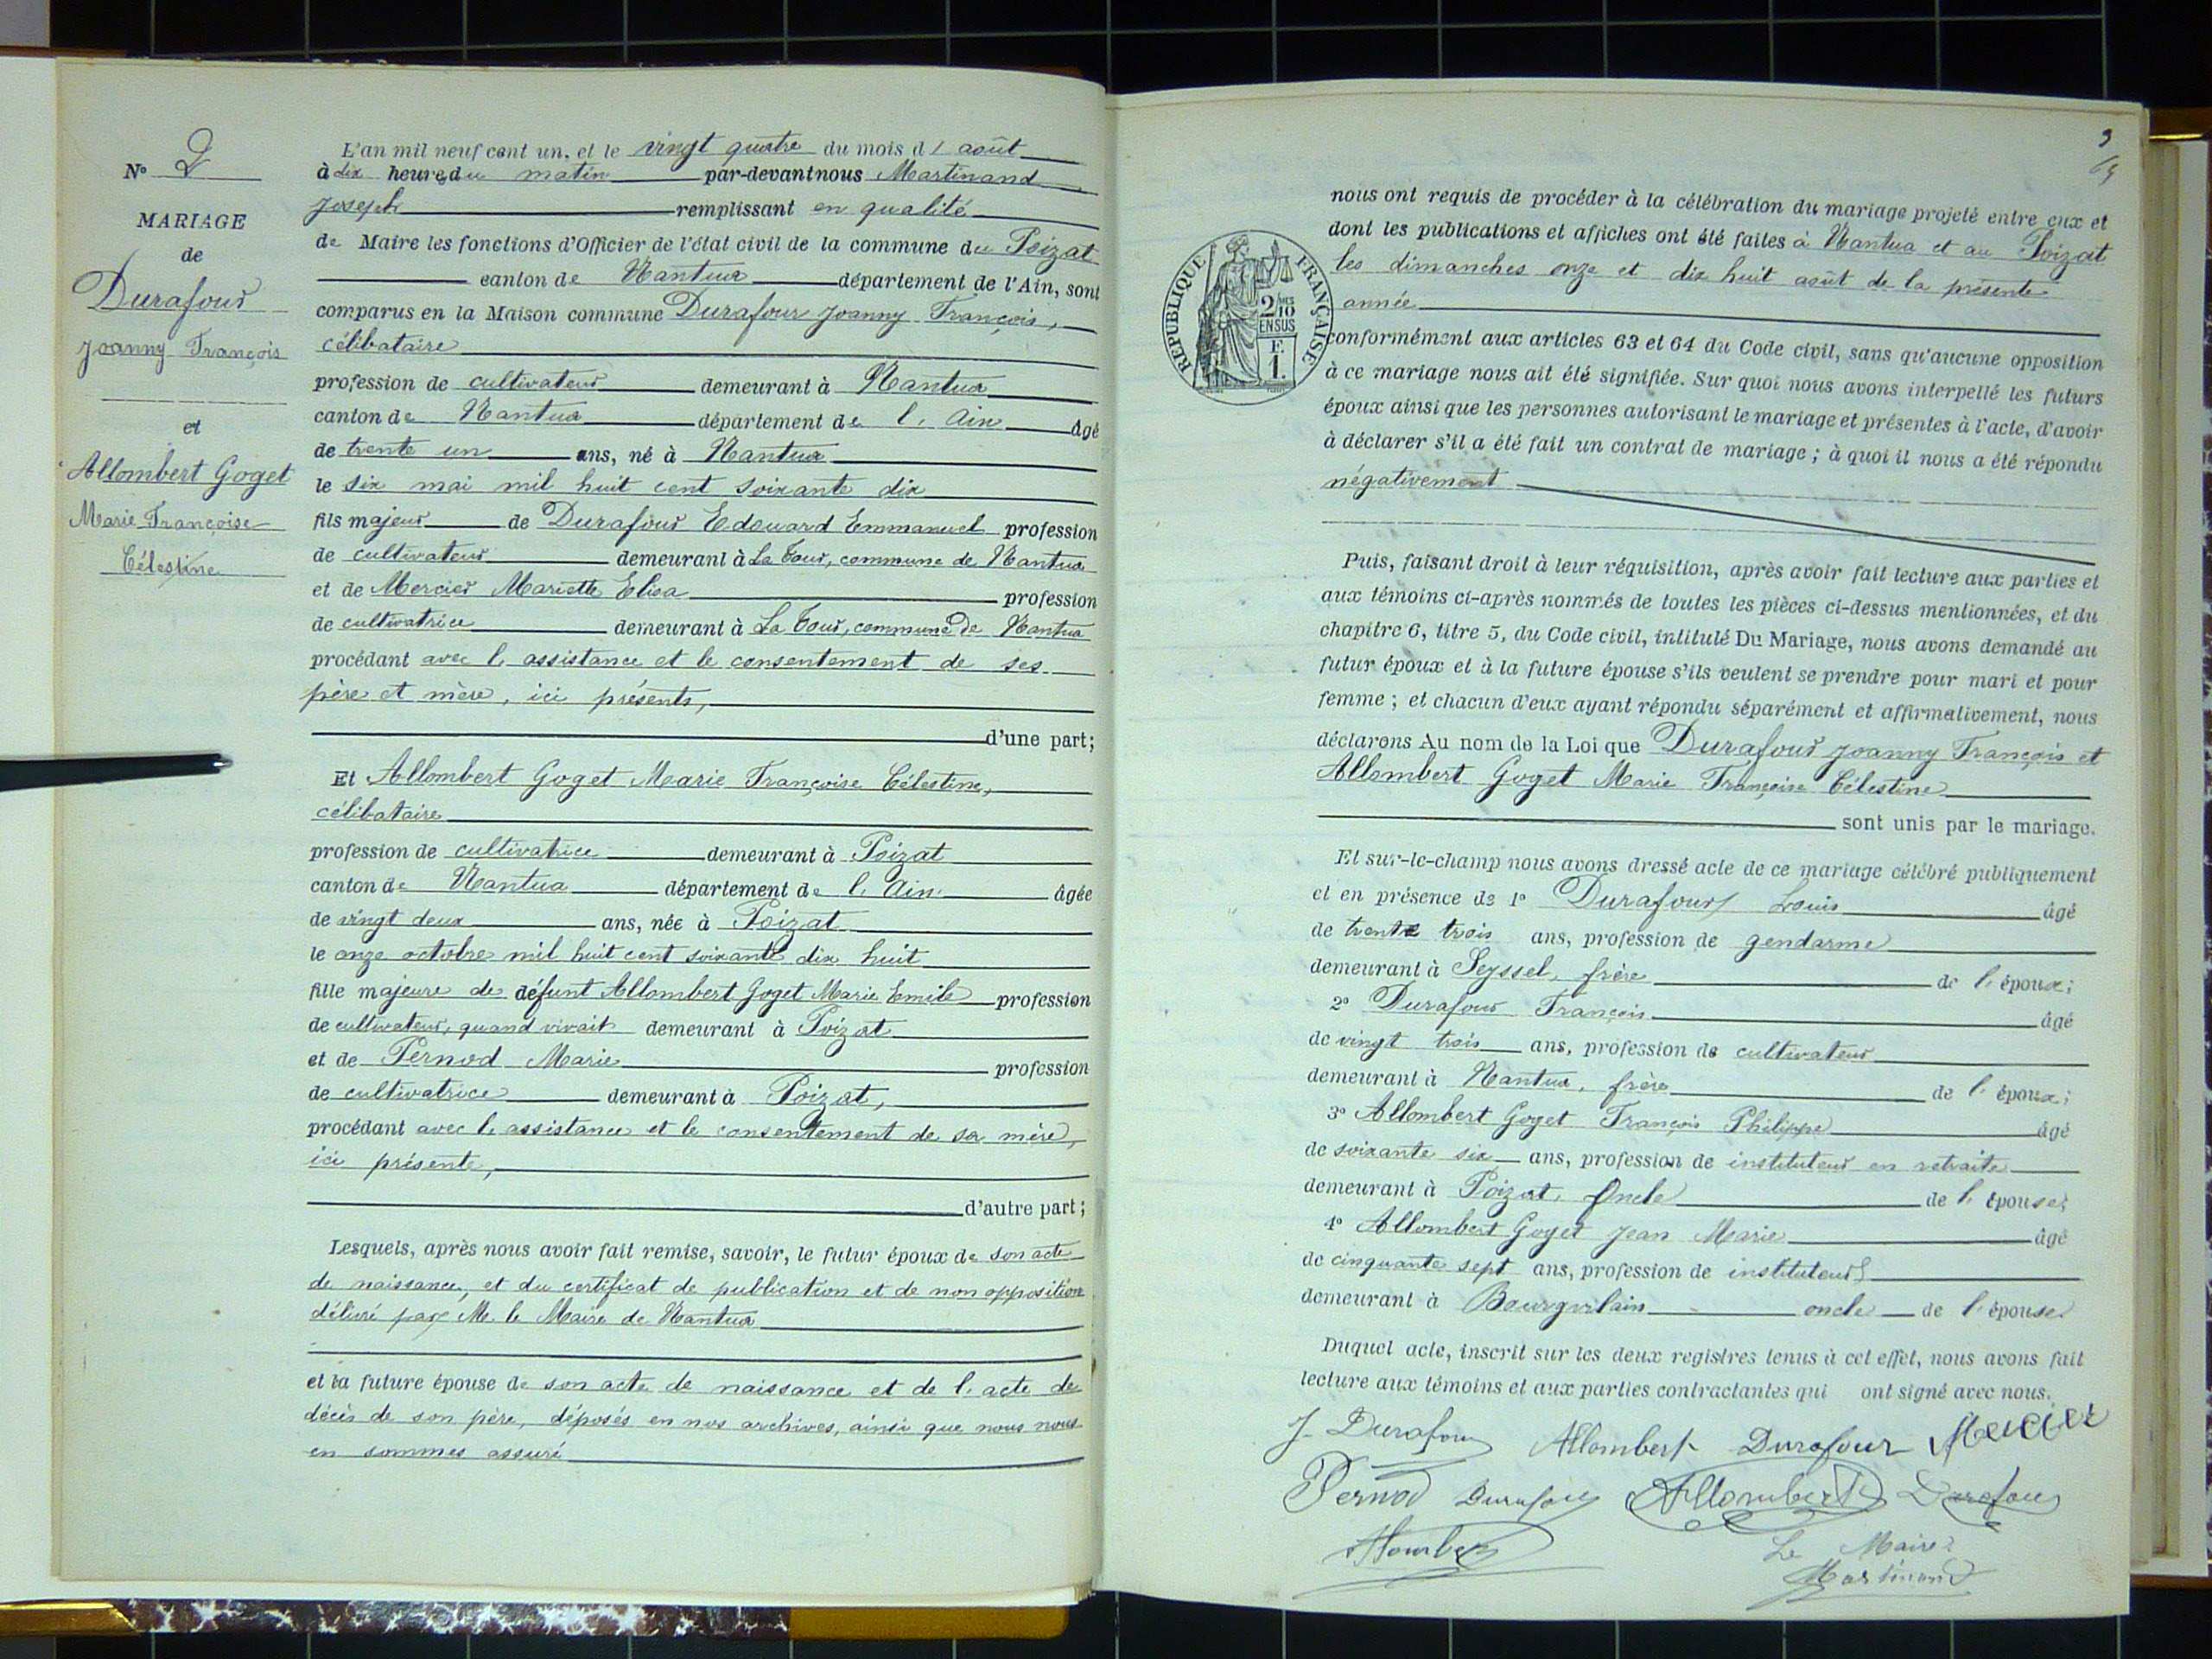 N° 2
MARIAGE
de
Durafour
Joanny François
et
Allombert Goget
Marie Françoise
Célestine
L'an mil neuf cent un, et le vingt quatre du mois d'août
à dix heures du matin par-devant nous Martinand
Joseph remplissant en qualité
de Maire les fonctions d'Officier de l'état civil de la commune du Poizat
canton de Nantua département de l'Ain, sont
comparus en la Maison commune Durafour Joanny François,
célibataire
profession de cultivateur demeurant à Nantua
canton de Nantua département de l'Ain âgé
de trente un ans, né à Nantua
le six mai mil huit cent soixante dix
fils majeur de Durafour Edouard Emmanuel profession
de cultivateur demeurant à La Tour, commune de Nantua
et de Mercier Mariette Elisa profession
de cultivatrice demeurant à La Tour, commune de Nantua
procédant avec l'assistance et le consentement de ses
père et mère, ici présents,
d'une part;
Et Allombert Goget Marie Françoise Célestine,
célibataire
profession de cultivatrice demeurant à Poizat
canton de Nantua département de l'Ain âgée
de vingt deux ans, née à Poizat
le onze octobre mil huit cent soixante dix huit
fille majeure de défunt Allombert Goget Marie Emile profession
de cultivateur, quand vivait demeurant à Poizat
et de Pernod Marie profession
de cultivatrice demeurant à Poizat,
procédant avec l'assistance et le consentement de sa mère,
ici présente,
d'autre part;
Lesquels, après nous avoir fait remise, savoir, le futur époux de son acte
de naissance, et du certificat de publication et de non opposition
délivré par M. le Maire de Nantua
et la future épouse de son acte de naissance et de l'acte de
décès de son père, déposés en nos archives, ainsi que nous nous
en sommes assuré
3
nous ont requis de procéder à la célébration du mariage projeté entre eux et
dont les publications et affiches ont été faites à Nantua et au Poizat
les dimanches onze et dix huit août de la présente
année
RÉPUBLIQUE FRANÇAISE
2/10 EN SUS
F. 1.
conformément aux articles 63 et 64 du Code civil, sans qu'aucune opposition
à ce mariage nous ait été signifiée. Sur quoi nous avons interpellé les futurs
époux ainsi que les personnes autorisant le mariage et présentes à l'acte, d'avoir
à déclarer s'il a été fait un contrat de mariage; à quoi il nous a été répondu
négativement
Puis, faisant droit à leur réquisition, après avoir fait lecture aux parties et
aux témoins ci-après nommés de toutes les pièces ci-dessus mentionnées, et du
chapitre 6, titre 5, du Code civil, intitulé Du Mariage, nous avons demandé au
futur époux et à la future épouse s'ils veulent se prendre pour mari et pour
femme; et chacun d'eux ayant répondu séparément et affirmativement, nous
déclarons Au nom de la Loi que Durafour Joanny François et
Allombert Goget Marie Françoise Célestine
sont unis par le mariage.
Et sur-le-champ nous avons dressé acte de ce mariage célébré publiquement
et en présence de 1° Durafour Louis âgé
de trente trois ans, profession de gendarme
demeurant à Seyssel, frère de l'époux;
2° Durafour François âgé
de vingt trois ans, profession de cultivateur
demeurant à Nantua, frère de l'époux;
3° Allombert Goget François Philippe âgé
de soixante six ans, profession de instituteur en retraite
demeurant à Poizat, Oncle de l'épouse;
4° Allombert Goget Jean Marie âgé
de cinquante sept ans, profession de instituteur
demeurant à oncle de l'épouse
Duquel acte, inscrit sur les deux registres tenus à cet effet, nous avons fait
lecture aux témoins et aux parties contractantes qui ont signé avec nous.
J. Durafour Allombert Durafour Mercier
Pernod Durafour Allombert Durafour
Allombert Le Maire
Martinand